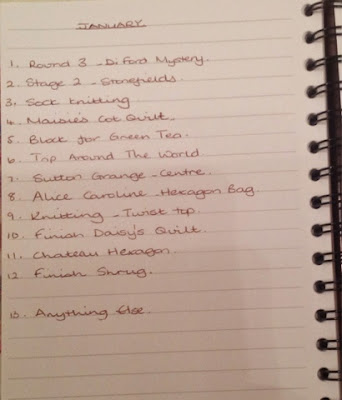 JANUARY
1. Round 3 - Di Ford Mystery.
2. Stage 2 - Stonefields.
3. Sock knitting
4. Maisie's Cot Quilt.
5. Block for Green Tea.
6. Trip Around The World.
7. Sutton Grange - Centre.
8. Alice Caroline - Hexagon Bag.
9. Knitting - Twist top.
10. Finish Daisy's Quilt.
11. Chateau Hexagon.
12 Finish Shrug.
13. Anything Else.